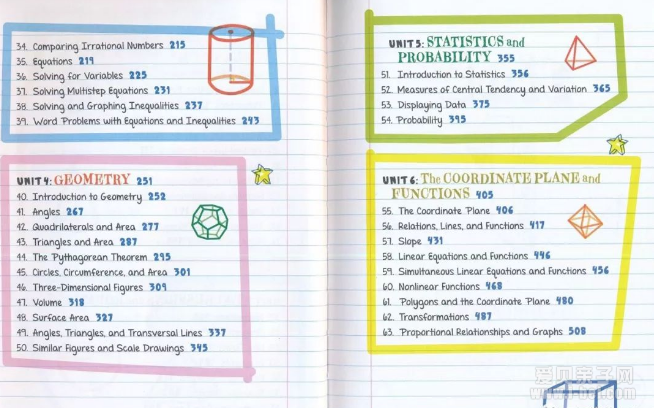 34. Comparing Irrational Numbers 215
35. Equations 219
36. Solving for Variables 225
37. Solving Multistep Equations 231
38. Solving and Graphing Inequalities 237
39. Word Problems with Equations and Inequalities 243
UNIT 4: GEOMETRY 251
40. Introduction to Geometry 252
41. Angles 267
42. Quadrilaterals and Area 277
43. Triangles and Area 287
44. The Pythagorean Theorem 295
45. Circles, Circumference, and Area 301
46. Three-Dimensional Figures 309
47. Volume 318
48. Surface Area 327
49. Angles, Triangles, and Transversal Lines 337
50. Similar Figures and Scale Drawings 345
UNIT 5: STATISTICS and
PROBABILITY 355
51. Introduction to Statistics 356
52. Measures of Central Tendency and Variation 365
53. Displaying Data 375
54. Probability 395
UNIT 6: The COORDINATE PLANE and
FUNCTIONS 405
55. The Coordinate Plane 406
56. Relations, Lines, and Functions 417
57. Slope 431
58. Linear Equations and Functions 446
59. Simultaneous Linear Equations and Functions 456
60. Nonlinear Functions 468
61. Polygons and the Coordinate Plane 480
62. Transformations 487
63. Proportional Relationships and Graphs 508
爱贝亲子网